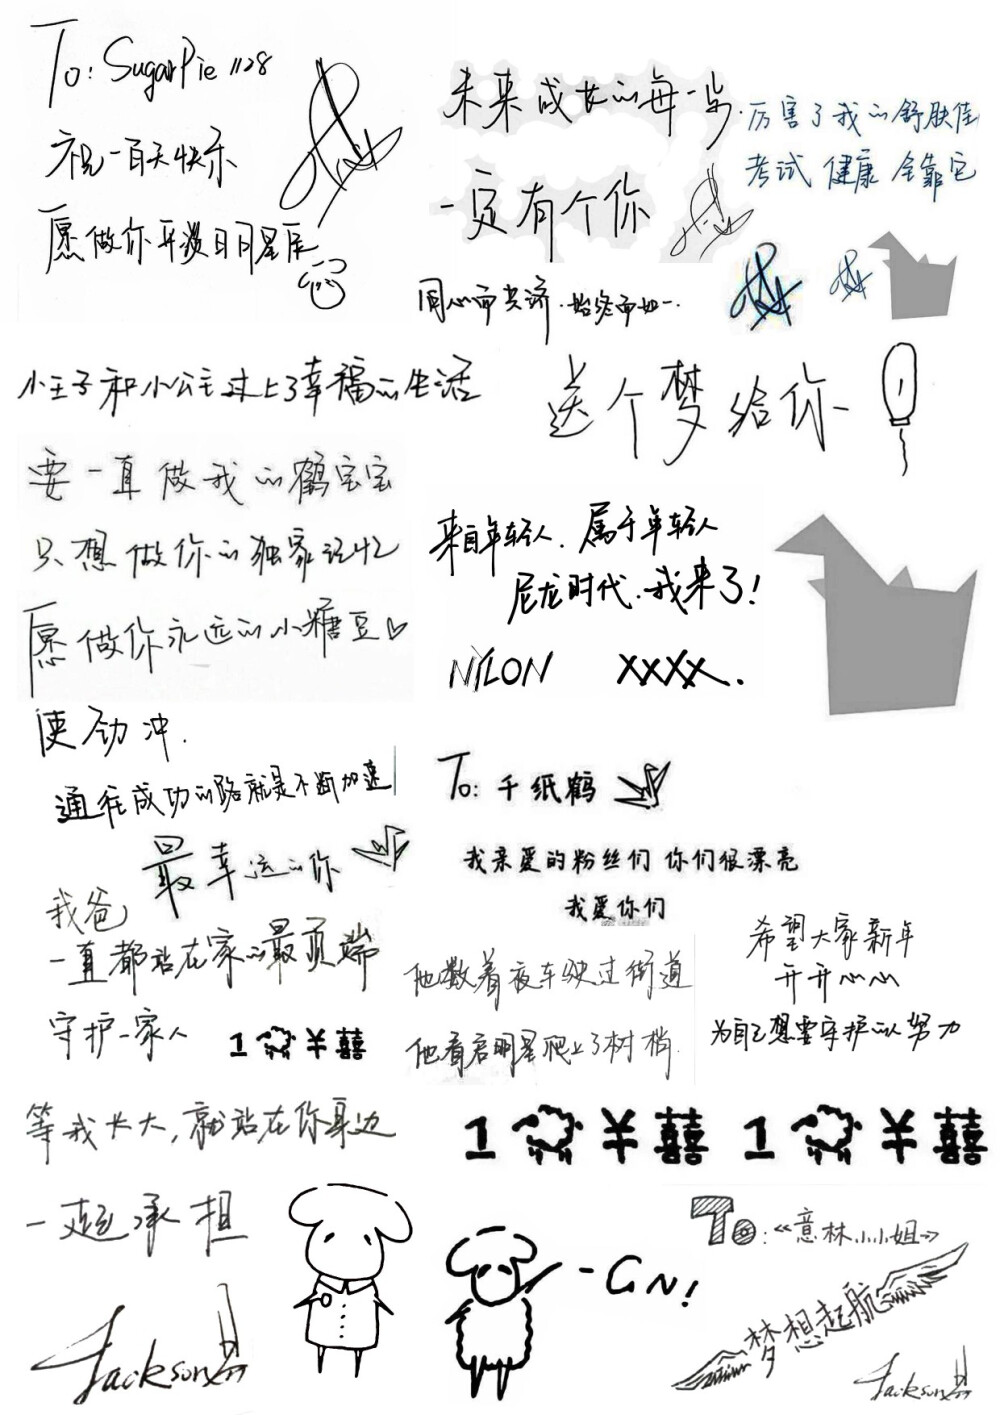 To: SugarPie 1128
祝一百天快乐
愿做你开挂日月星辰
未来成长的每一步
一定有个你
厉害了我的舒肤佳
考试 健康 全靠它
同心而共济·始终而如一.
小王子和小公主过上了幸福的生活
送个梦给你
要一直做我的鹤宝宝
只想做你的独家记忆
愿做你永远的小糖豆♡
来自年轻人.属于年轻人
尼龙时代.我来了!
NYLON XXXX.
使劲冲.
通往成功的路就是不断加速
最幸运的你
To: 千纸鹤
我亲爱的粉丝们 你们很漂亮
我爱你们
我爸
一直都站在家的最顶端
守护一家人
1 ¥ 囍
他数着夜车驶过街道
他看启明星爬上了树梢.
希望大家新年
开开心心
为自己想要守护的人努力
等我长大,就站在你身边
一起承担
1 ¥ 囍
1 ¥ 囍
-GN!
To:《意林小小姐》
梦想起航
Jackson
Jackson